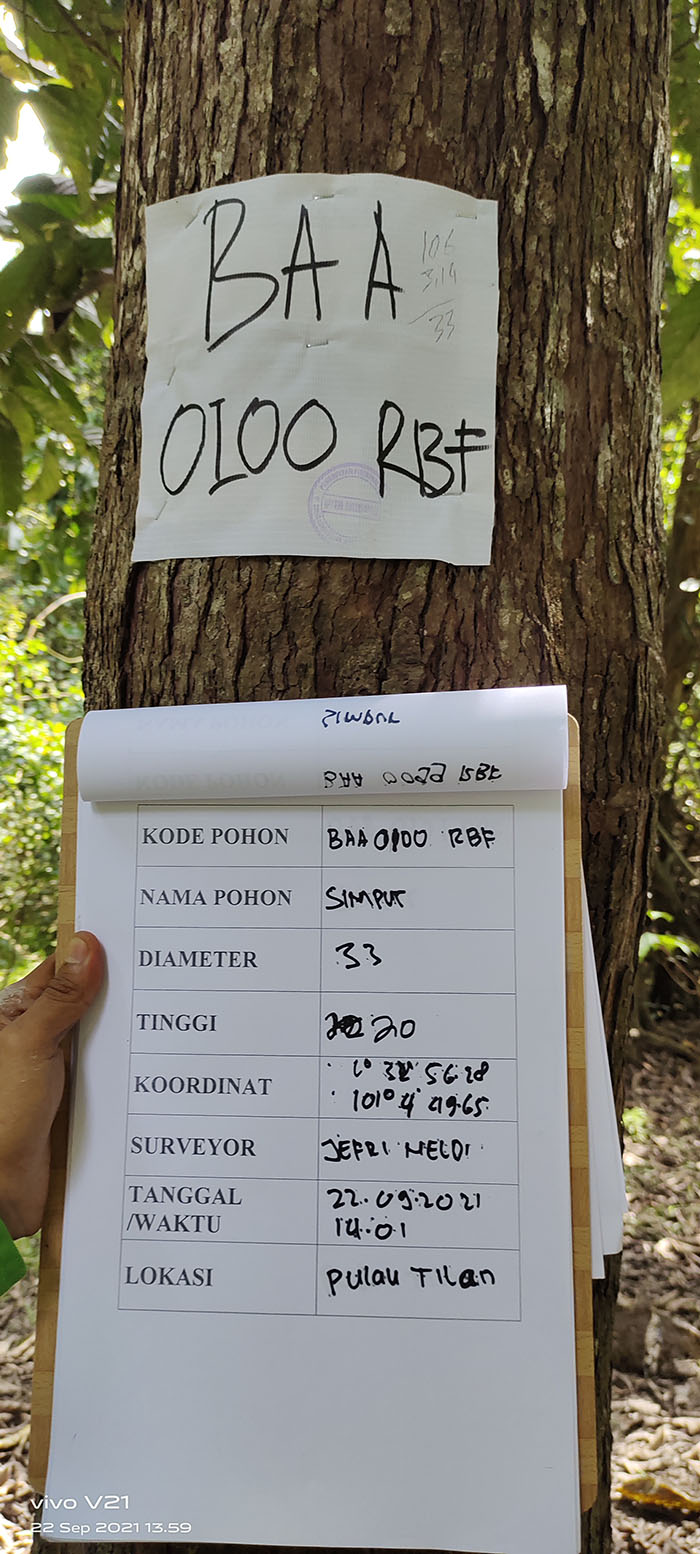 BAA
106
3,14
33
0100 RBF
KODE POHON BAA 0100 RBF
NAMA POHON SIMPUR
DIAMETER 33
TINGGI 20
KOORDINAT 56.28
101° 4' 49.65
SURVEYOR JEFRI MELDI
TANGGAL /WAKTU 22.09.2021
14.01
LOKASI Pulau Tilan
vivo V21
22 Sep 2021 13.59